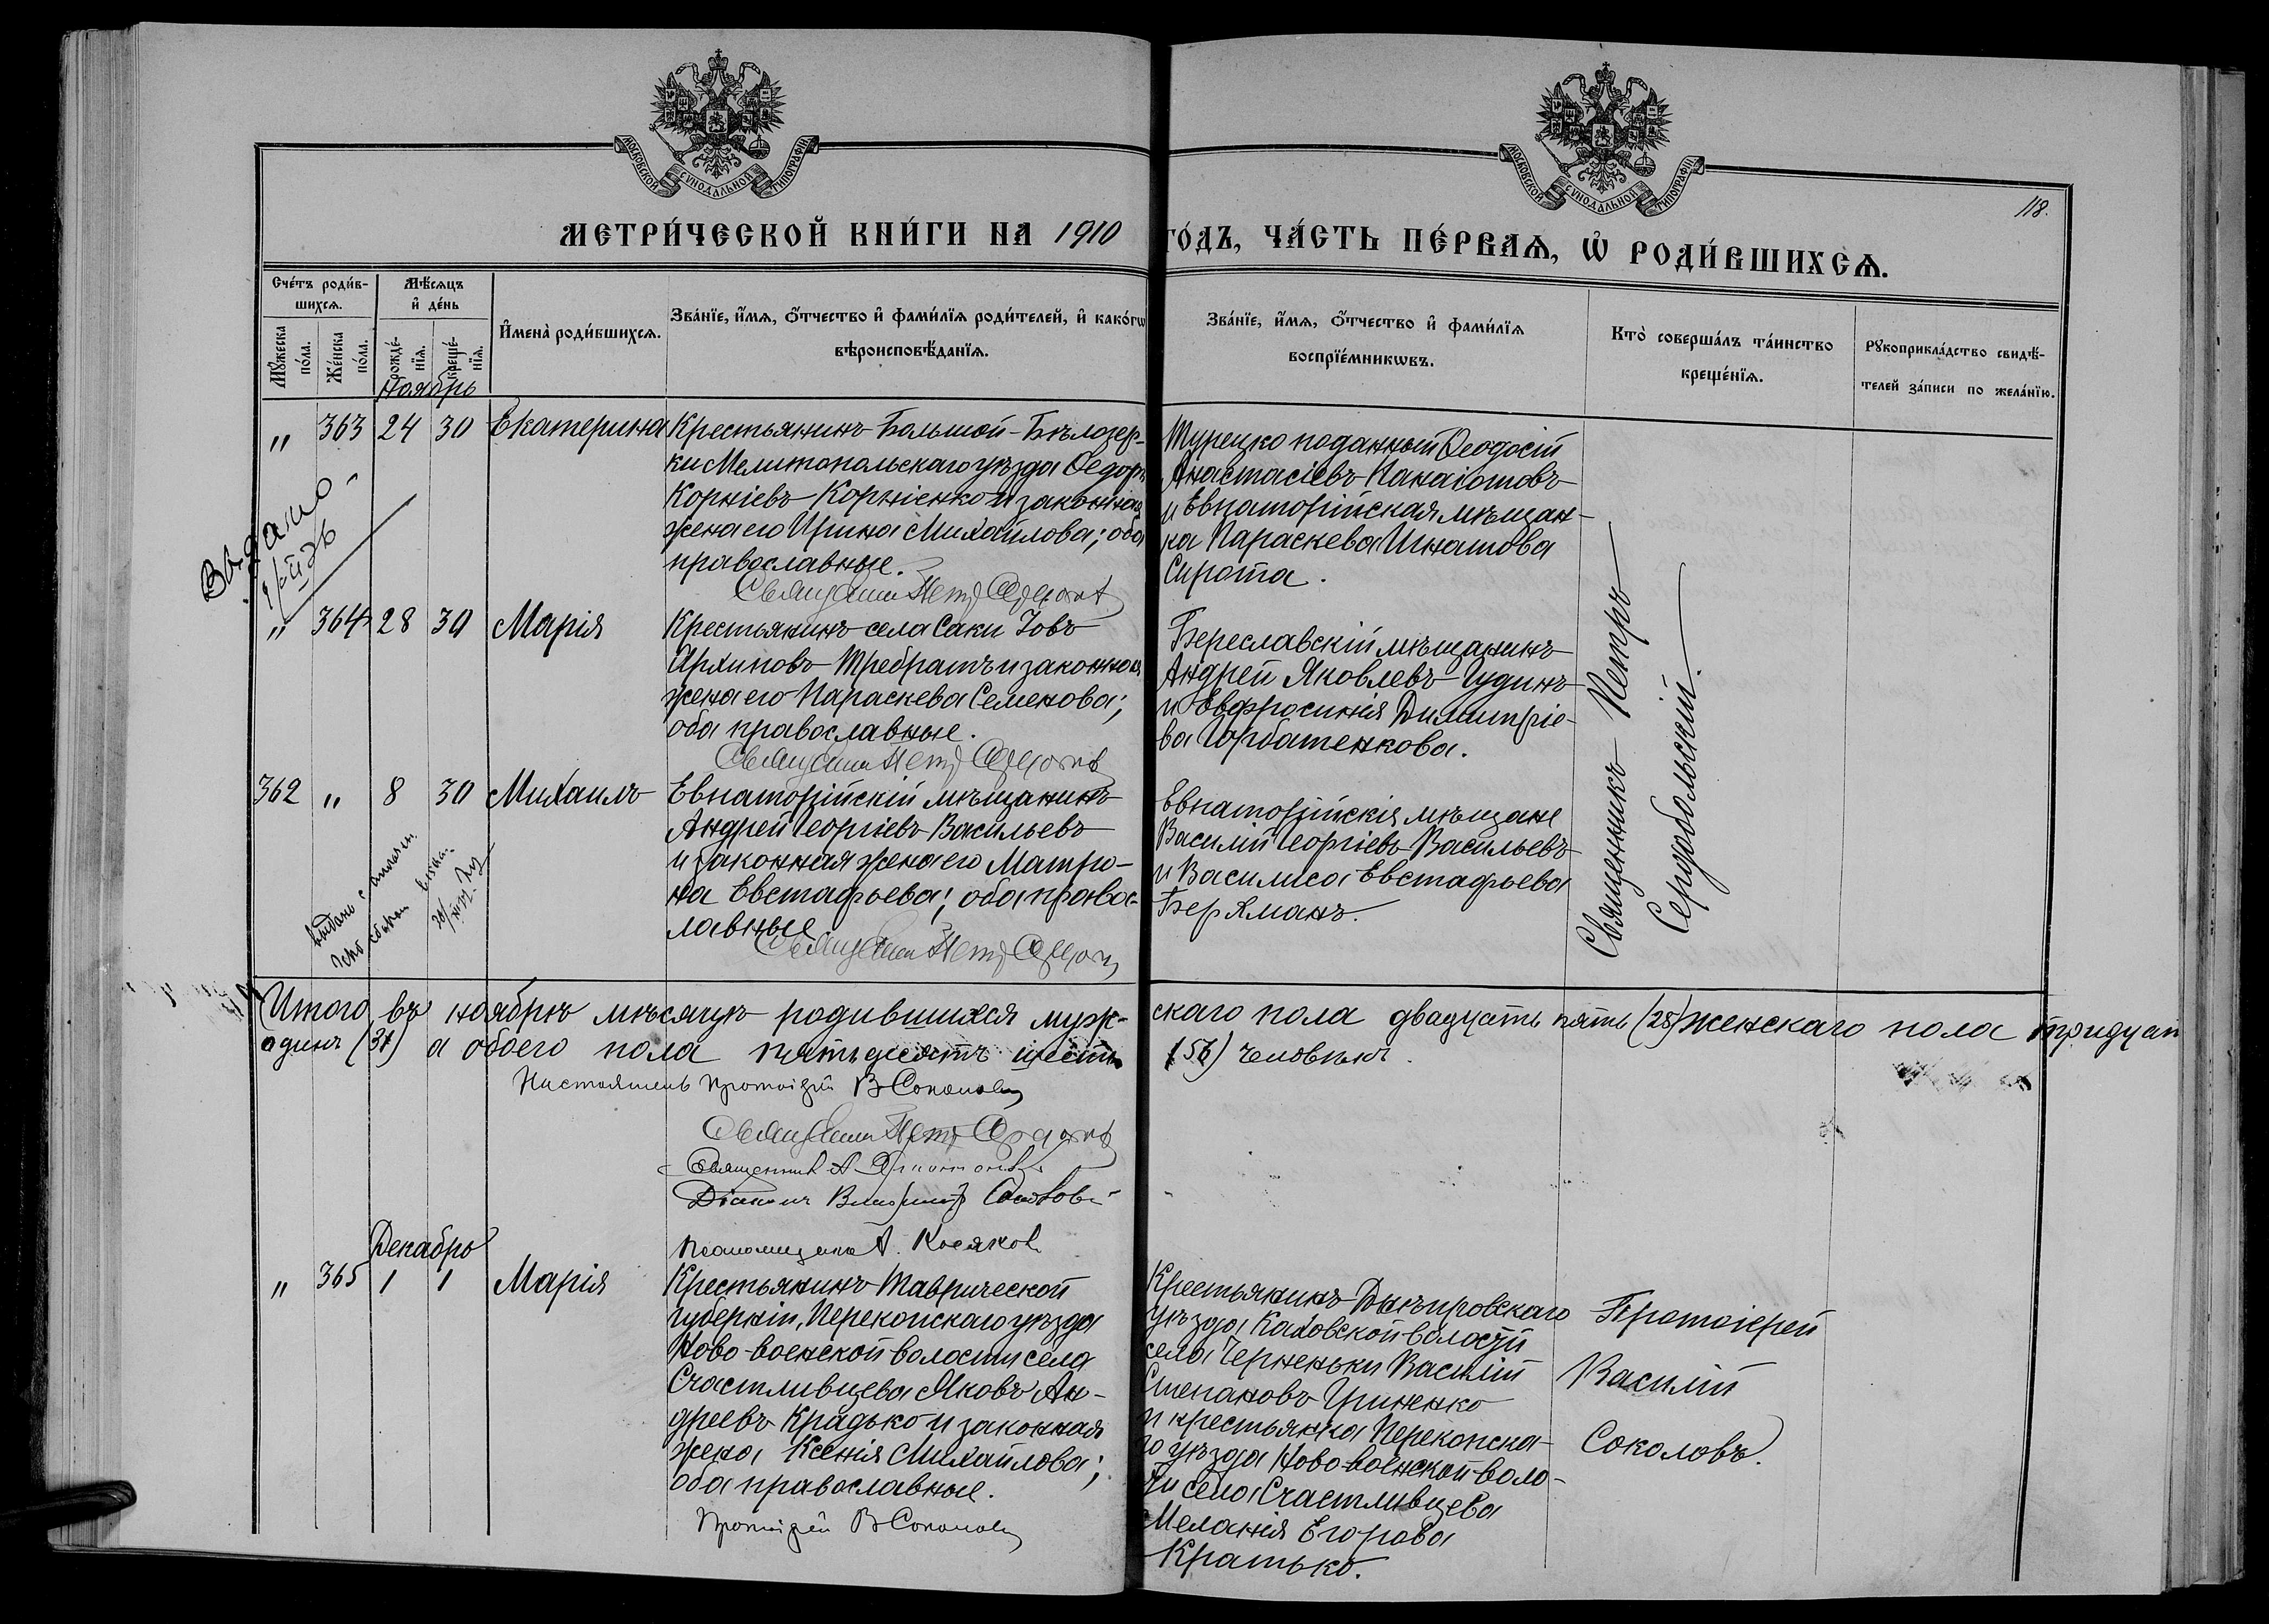 МОСКОВСКОЙ СѴНОДАЛЬНОЙ ТИПОГРАФІИ
МОСКОВСКОЙ СѴНОДАЛЬНОЙ ТИПОГРАФІИ
118.
МЕТРИ́ЧЕСКОЙ КНИ́ГИ НА 1910 ГО́ДЪ, ЧА́СТЬ ПЕ́РВАѦ, Ѡ҆ РОДИ́ВШИХСѦ.
Сче́тъ роди́в-
шихсѧ.
Мꙋ́жеска по́ла.
Же́нска по́ла.
Мѣ́сѧцъ и҆ де́нь
рожде́-нїѧ.
креще́-нїѧ.
И҆мена̀ роди́вшихсѧ.
Зва́нїе, и҆́мѧ, ѻ҆́тчество и҆ фами́лїѧ роди́телей, и҆ како́гѡ
вѣроисповѣ́данїѧ.
Зва́нїе, и҆́мѧ, ѻ҆́тчество и҆ фами́лїѧ
воспрїе́мникѡвъ.
Кто̀ соверша́лъ та́инство
креще́нїѧ.
Рꙋкоприкла́дство свидѣ́-
телей за́писи по жела́нїю.
Ноябрь
" 363 24 30 Екатерина
Крестьянинъ Большой-Бѣлозер-
ки Мелитопольскаго уѣзда Ѳедоръ
Корніевъ Корніенко и законная
жена его Ирина Михайлова; оба
православные.
Турецко поданный Ѳеодосій
Анастасіевъ Панаіотовъ
и Евпаторійская мѣщан-
ка Параскева Игнатова
Сирота.
Выдано
" 364 28 30 Марія
Крестьянинъ села Саки Іовъ
Архиповъ Требратъ и законная
жена его Параскева Семенова;
оба православные.
Береславскій мѣщанинъ
Андрей Яковлевъ Гудинъ
и Евфросинія Димитріе-
ва Горбатенкова.
362 " 8 30 Михаилъ
Евпаторійскій мѣщанинъ
Андрей Георгіевъ Васильевъ
и законная жена его Матро-
на Евстафьева; оба правос-
лавные
Евпаторійскія мѣщане
Василій Георгіевъ Васильевъ
и Василиса Евстафьева
Берхманъ.
Священникъ Петръ
Сердобольскій.
Итого въ ноябрѣ мѣсяцѣ родившихся муж-
скаго пола двадцать пять (25) женскаго пола тридцат
одинъ (31) а обоего пола пятьдесятъ шесть
(56) человѣкъ.
Настоятель Протоіерей В Соколовъ
Священникъ А.
Діаконъ
Псаломщикъ А. Косяковъ
Декабрь
" 365 1 1 Марія
Крестьянинъ Таврической
губерніи, Перекопскаго уѣзда
Ново-военской волости села
Счастливцева Яковъ Ан-
дреевъ Крадько и законная
жена Ксенія Михайлова;
оба православные.
Протоіерей В Соколовъ
Крестьянинъ Днѣпровскаго
уѣзда Каховской волости
села Черненьки Василій
Степановъ Гриненко
и крестьянка Перекопска-
го уѣзда Ново-военской воло-
сти села Счастливцева
Меланія Егорова
Кратько.
Протоіерей
Василій
Соколовъ.